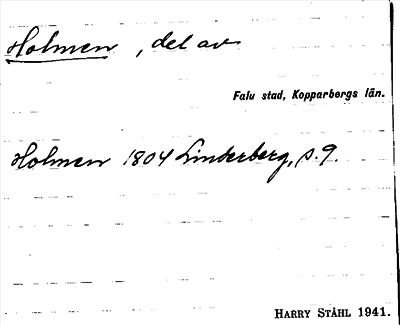 Holmen, del av
Falu stad, Kopparbergs län.
Holmen 1804 Linderberg, s. 9.
HARRY STÅHL 1941.